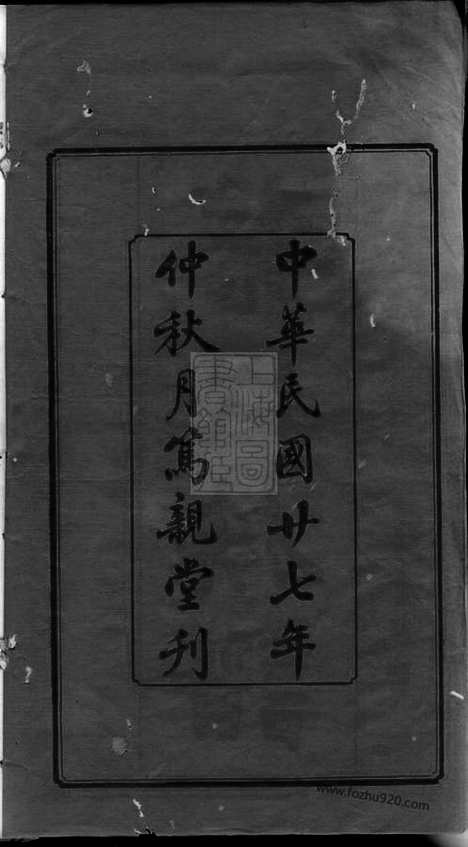 中華民國廿七年
仲秋月篤親堂刋
上海圖
書館藏
www.fozhu920.com